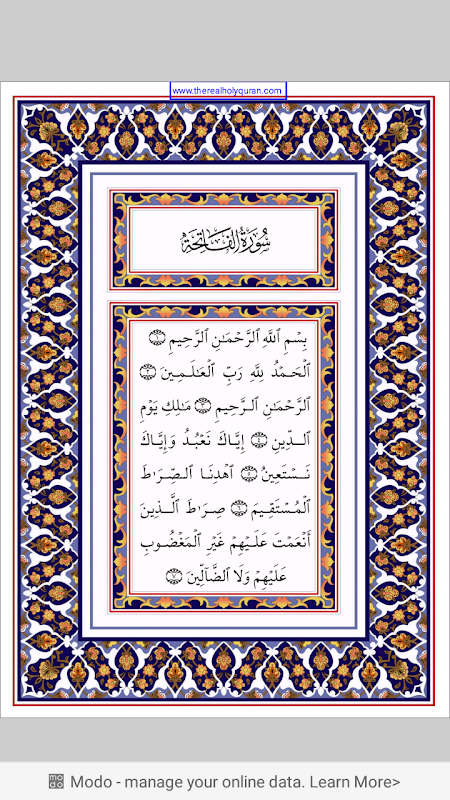 www.therealholyquran.com
سُورَةُ الفَاتِحَةِ
بِسۡمِ ٱللَّهِ ٱلرَّحۡمَـٰنِ ٱلرَّحِيمِ ١
ٱلۡحَمۡدُ لِلَّهِ رَبِّ ٱلۡعَـٰلَمِينَ ٢
ٱلرَّحۡمَـٰنِ ٱلرَّحِيمِ ٣ مَـٰلِكِ يَوۡمِ
ٱلدِّينِ ٤ إِيَّاكَ نَعۡبُدُ وَإِيَّاكَ
نَسۡتَعِينُ ٥ ٱهۡدِنَا ٱلصِّرَٰطَ
ٱلۡمُسۡتَقِيمَ ٦ صِرَٰطَ ٱلَّذِينَ
أَنۡعَمۡتَ عَلَيۡهِمۡ غَيۡرِ ٱلۡمَغۡضُوبِ
عَلَيۡهِمۡ وَلَا ٱلضَّآلِّينَ ٧
modo Modo - manage your online data. Learn More>